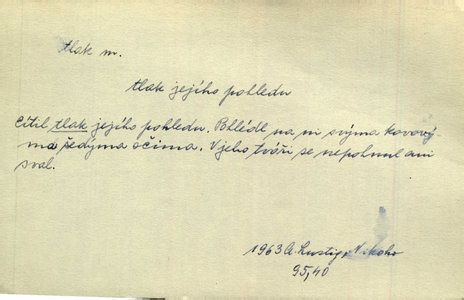 tlak m.
tlak jejího pohledu
Cítil tlak jejího pohledu. Pohlédl na ni svýma kovový-
ma šedýma očima. V jeho tváři se nepohnul ani
sval.
1963 A. Lustig, Nikoho
95,40